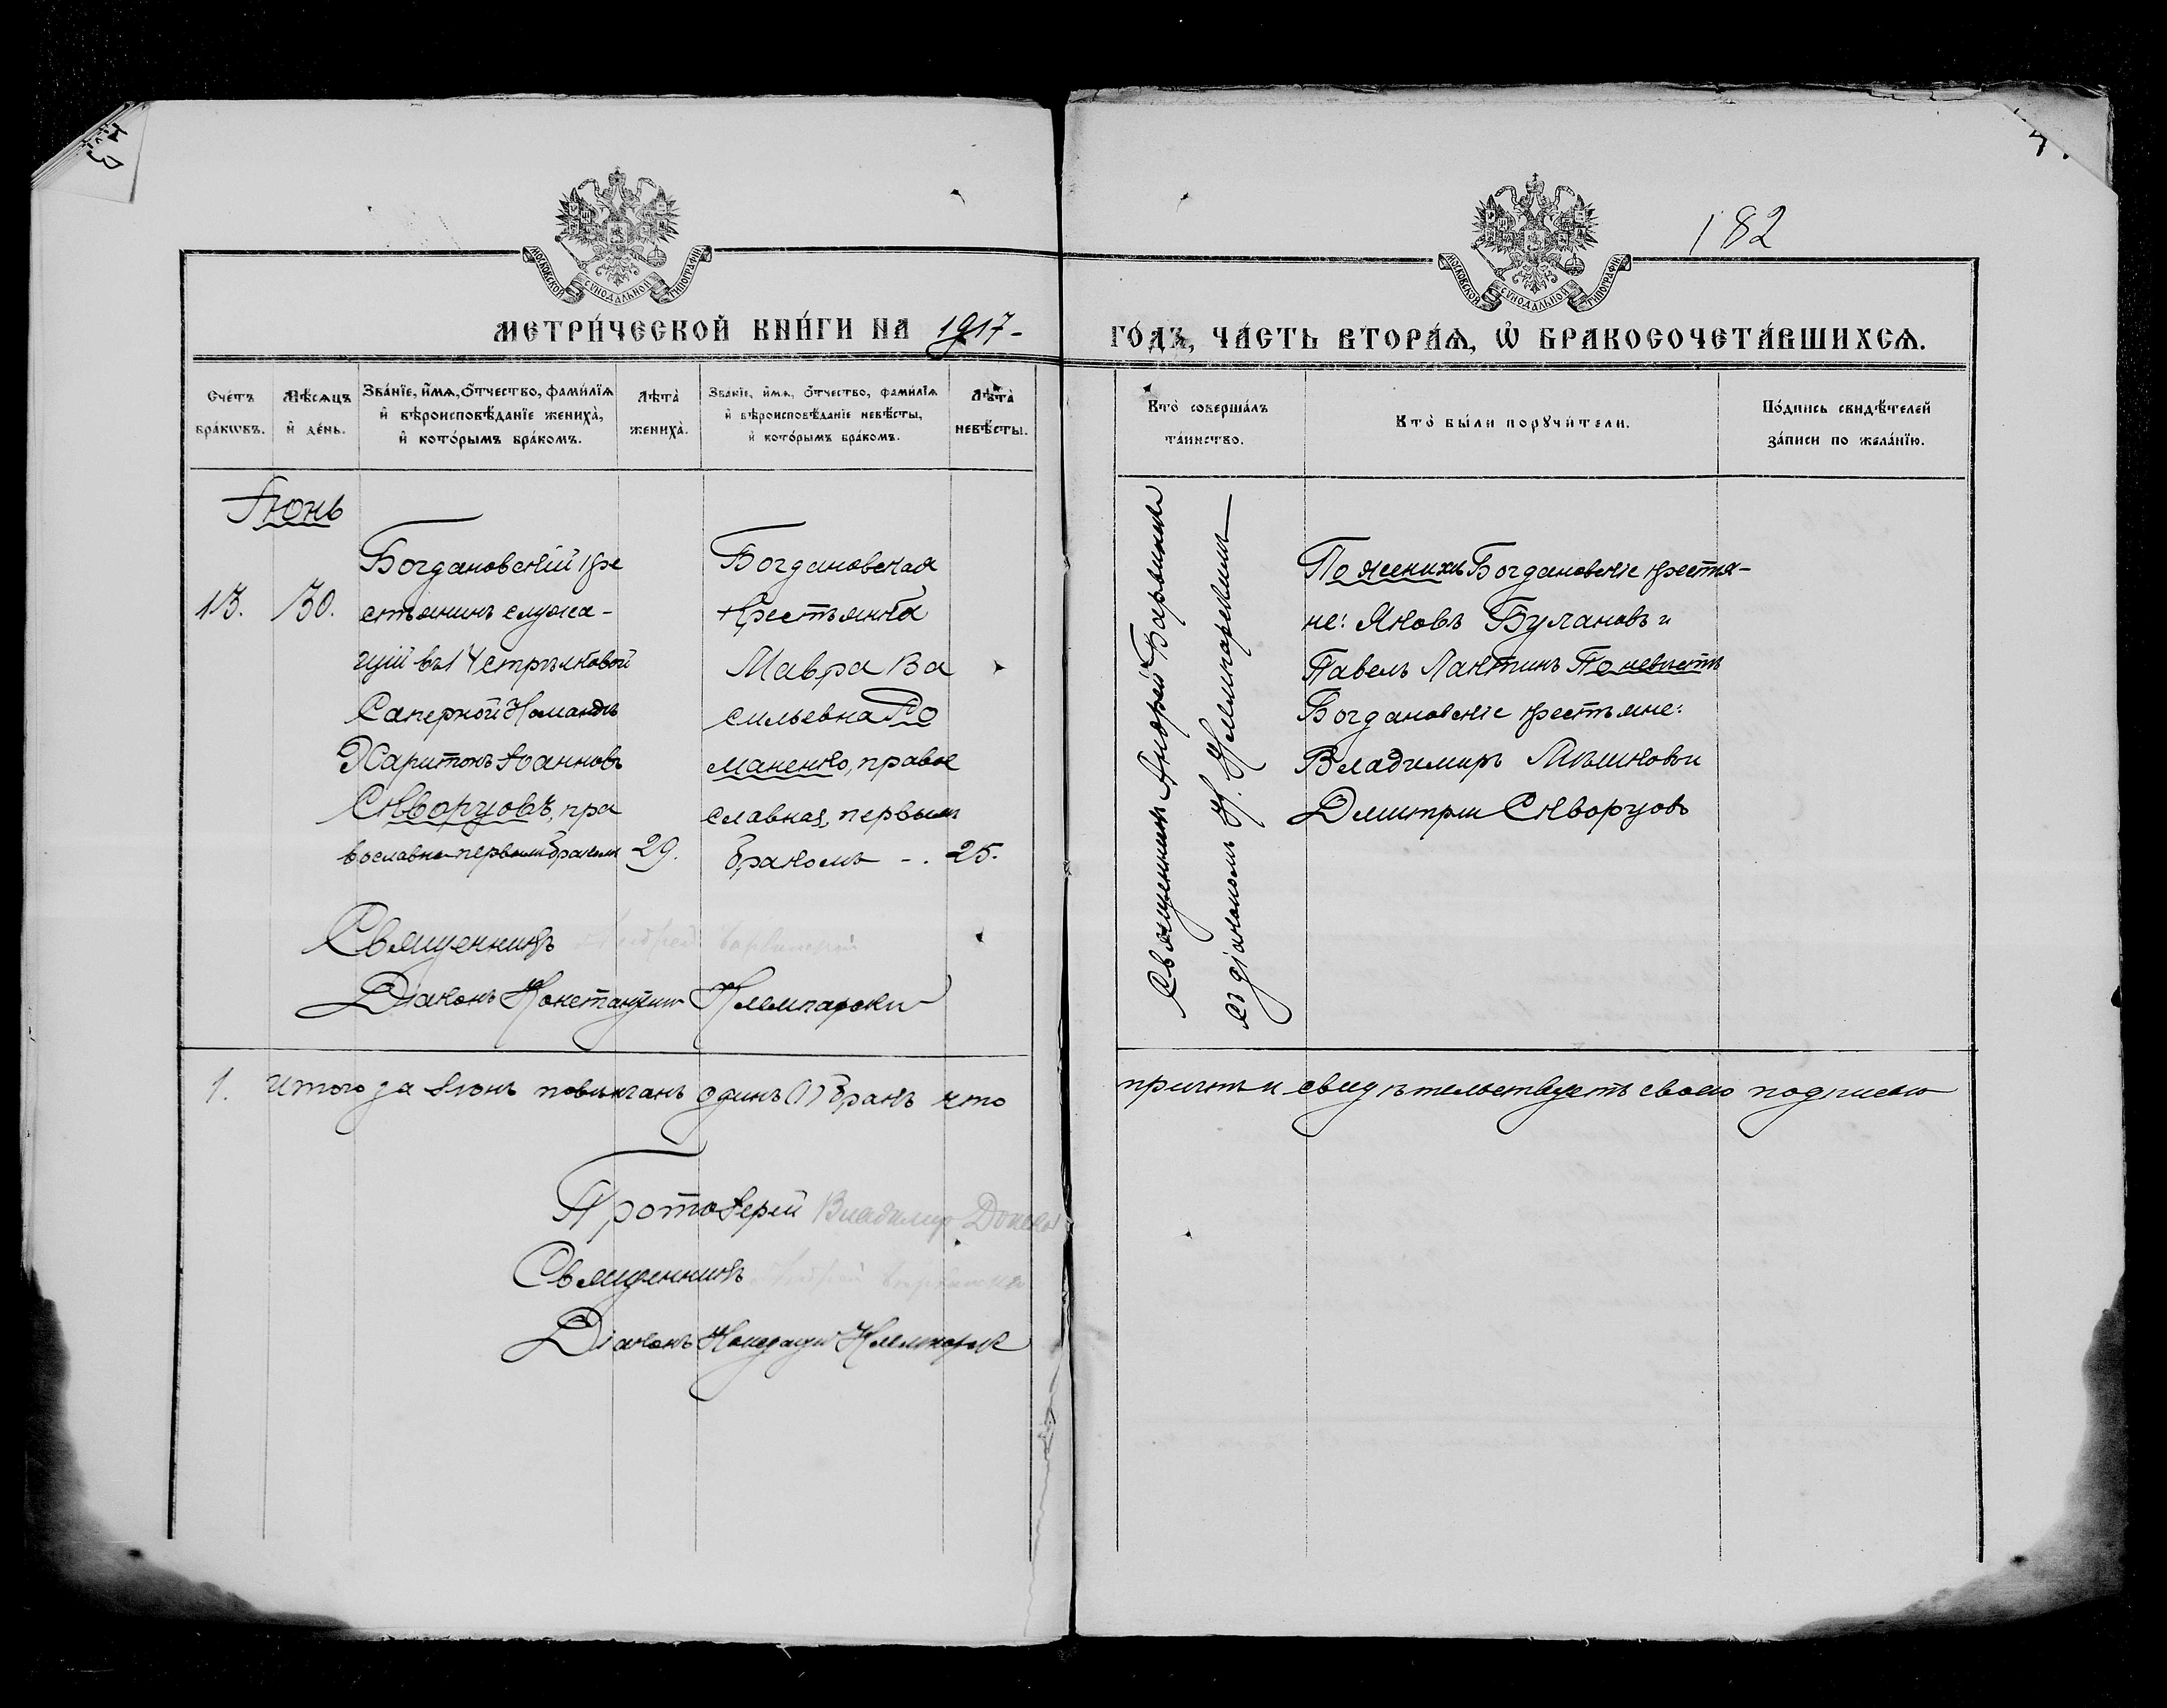 182
МОСКОВСКОЙ СѴНОДАЛЬНОЙ ТИПОГРАФІИ
МОСКОВСКОЙ СѴНОДАЛЬНОЙ ТИПОГРАФІИ
МЕТРИ́ЧЕСКОЙ КНИ́ГИ НА 1917-
ГО́ДЪ, ЧА́СТЬ ВТОРА́Ѧ, Ѡ҆ БРАКОСОЧЕТА́ВШИХСѦ.
Сче́тъ бра́кѡвъ.
Мѣ́сѧцъ и҆ де́нь.
Зва́нїе, и҆́мѧ, ѻ҆́тчество, фами́лїѧ
и҆ вѣроисповѣ́данїе жениха̀,
и҆ кото́рымъ бра́комъ.
Лѣ́та жениха̀.
Зва́нїе, и҆́мѧ, ѻ҆́тчество, фами́лїѧ
и҆ вѣроисповѣ́данїе невѣ́сты,
и҆ кото́рымъ бра́комъ.
Лѣ́та невѣ́сты.
Кто̀ соверша́лъ
та́инство.
Кто̀ бы́ли порꙋчи́тели.
По́дпись свидѣ́телей
за́писи по жела́нїю.
Іюнь
13. 30.
Богдановскій кре
стьянинъ служа-
щій въ 14 стрѣлковой
Саперной Командѣ
Харитонъ Іоанновъ
Скворцовъ, пра
вославна первымъ бракомъ 29.
Богдановская
крестьянка
Мавра Ва
сильевна Ро
маненко, право
славная, первымъ
бракомъ -. 25.
Священникъ Андрей
съ діакономъ К.
По женихѣ Богдановскіе крестья-
не: Яковъ Булановъ и
Павелъ Лактинъ По невѣстѣ
Богдановскіе крестьяне:
Владимиръ
Дмитрій Скворцовъ
Священникъ Андрей
Діаконъ Константинъ
1. Итого за Іюнь повѣнчанъ одинъ (1) бракъ что
причтъ и свидѣтельствуетъ своею подписью
Протоіерей Владимир
Священникъ Андрей
Діаконъ